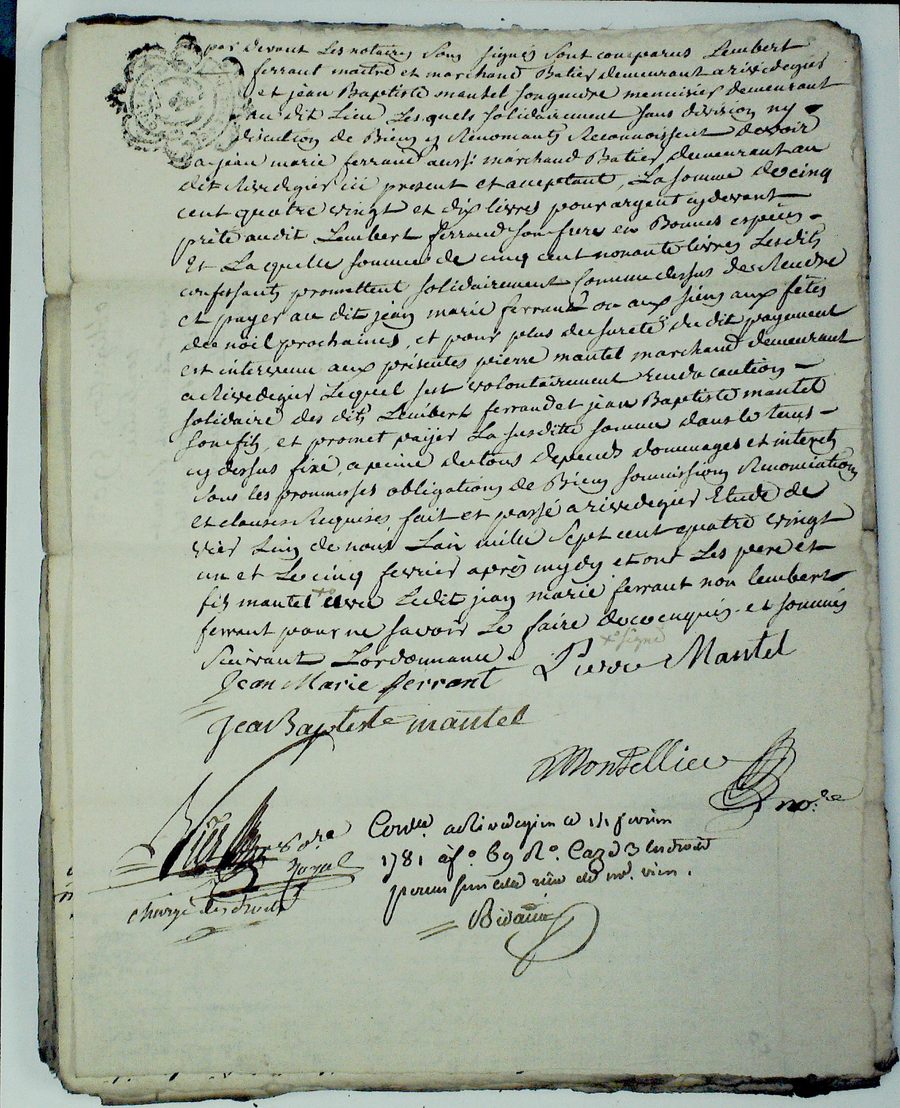 par devant Les notaires Sous signés Sont comparus Lembert
ferraut maitre et marchand Batier demeurant a rivedegier
et jean Baptiste mantel son gendre menuisier demeurant
au dit Lieu Lesquels solidairement sans division ny
discution de Biens y Renonconts Reconnoissent devoir
a jean marie ferraud aussi marchand Batier demeurant au
dit Rivedegier ici present et acceptant, La somme de cinq
cent quatre vingt et dix livres pour argent cy devant
prêté au dit Lembert ferraud son frere en Bonnes especes
Et La quelle somme de cinq cent nonante livres Lesdits
confessants promettent solidairement comme dessus de Rendre
et payer au dit jean marie ferrant ou aux siens aux fêtes
de noël prochaines, et pour plus de sureté du dit payement
est intervenu aux présentes pierre mantel marchand demeurant
a Rivedegier Lequel s'est volontairement Rendu caution
solidaire des dits Lembert ferraud et jean Baptiste mantel
son fils, et promet payer La susditte somme dans le tems
cy dessus fixé, a peine de tous depends dommages et interets
sous les promesses obligations de Biens soumissions Renonciations
et clauses Requises, fait et passé a rivedegier Etude de
vier L'un de nous L'an mille sept cent quatre vingt
un et Le cinq fevrier après mydy et ont Les pere et
fils mantel avec Ledit jean marie ferraut non Lembert
ferrant pour ne savoir Le faire de ce enquis et sommés
Suivant Lordonnance
x signé
Jean Marie ferrant Pierre Mantel
Jean Baptiste mantel
Montellier no.re
Vier
royal
chargé des droits
Conlé a Rivedegier le 11 fevrier
1781 a f.o 69 R.o Caze 3